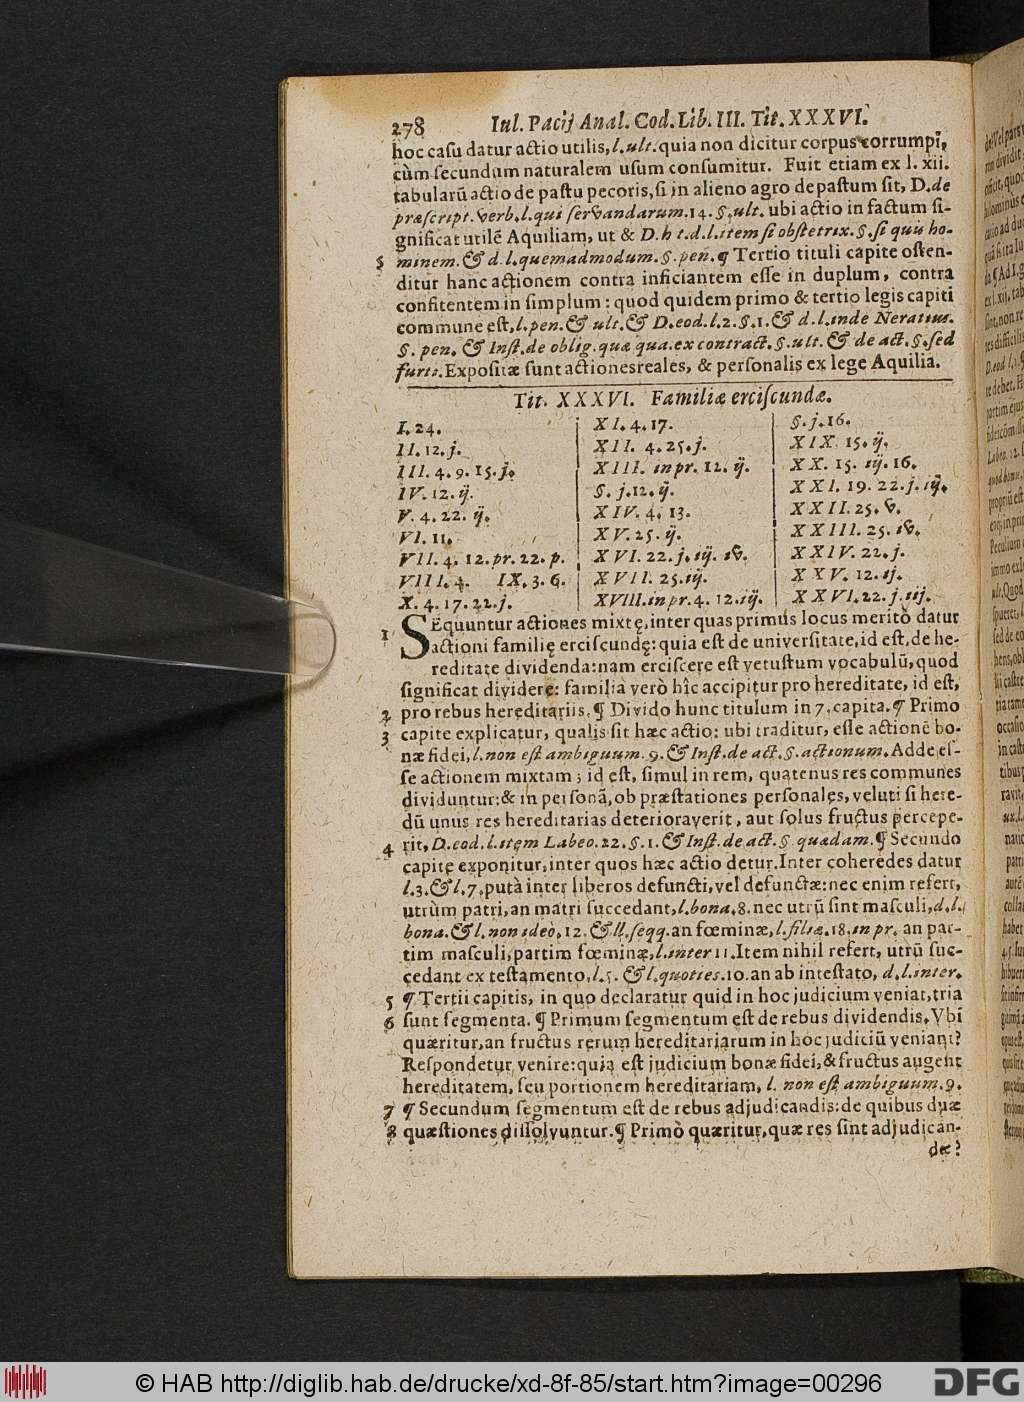 278 Iul. Pacij Anal. Cod. Lib. III. Tit. XXXVI.
hoc casu datur actio utilis, l. ult. quia non dicitur corpus corrumpi,
cùm secundum naturalem usum consumitur. Fuit etiam ex l. xii.
tabularũ actio de pastu pecoris, si in alieno agro depastum sit, D. de
præscript. verb. l. qui servandarum. 14. §. ult. ubi actio in factum si-
gnificat utilẽ Aquiliam, ut & D. h t. d. l. item si obstetrix. §. si quis ho-
5 minem. & d. l. quemadmodum. §. pen. ¶ Tertio tituli capite osten-
ditur hanc actionem contra inficiantem esse in duplum, contra
confitentem in simplum: quod quidem primo & tertio legis capiti
commune est, l. pen. & ult. & D. eod. l. 2. §. 1. & d. l. inde Neratius.
§. pen. & Inst. de oblig. quæ qua. ex contract. §. ult. & de act. §. sed
furti. Expositæ sunt actiones reales, & personalis ex lege Aquilia.
Tit. XXXVI. Familiæ erciscundæ.
I. 24.
II. 12. j.
III. 4. 9. 15. j.
IV. 12. ij.
V. 4. 22. ij.
VI. 11.
VII. 4. 12. pr. 22. p.
VIII. 4. IX. 3. 6.
X. 4. 17. 22. j.
XI. 4. 17.
XII. 4. 25. j.
XIII. in pr. 12. ij.
§. j. 12. ij.
XIV. 4. 13.
XV. 25. ij.
XVI. 22. j. iij. iv.
XVII. 25. iij.
XVIII. in pr. 4. 12. iij.
§. j. 16.
XIX. 15. ij.
XX. 15. iij. 16.
XXI. 19. 22. j. iij.
XXII. 25. v.
XXIII. 25. iv.
XXIV. 22. j.
XXV. 12. ij.
XXVI. 22. j. iij.
1 SEquuntur actiones mixtę, inter quas primus locus meritò datur
actioni familię erciscundę: quia est de universitate, id est, de he-
reditate dividenda: nam erciscere est vetustum vocabulũ, quod
significat dividere: familia verò hîc accipitur pro hereditate, id est,
2 pro rebus hereditariis. ¶ Divido hunc titulum in 7. capita. ¶ Primo
3 capite explicatur, qualis sit hæc actio: ubi traditur, esse actionẽ bo-
næ fidei, l. non est ambiguum. 9. & Inst. de act. §. actionum. Adde es-
se actionem mixtam; id est, simul in rem, quatenus res communes
dividuntur: & in personã, ob præstationes personales, veluti si here-
dũ unus res hereditarias deterioraverit, aut solus fructus percepe-
4 rit, D. eod. l. item Labeo. 22. §. 1. & Inst. de act. §. quædam. ¶ Secundo
capite exponitur, inter quos hæc actio detur. Inter coheredes datur
l. 3. & l. 7. putà inter liberos defuncti, vel defunctæ: nec enim refert,
utrùm patri, an matri succedant, l. bona. 8. nec utrũ sint masculi, d. l.
bona. & l. non ideò, 12. & ll. seqq. an fœminæ, l. filiæ. 18. in pr. an par-
tim masculi, partim fœminæ, l. inter 11. Item nihil refert, utrũ suc-
cedant ex testamento, l. 5. & l. quoties. 10. an ab intestato, d. l. inter.
5 ¶ Tertii capitis, in quo declaratur quid in hoc judicium veniat, tria
6 sunt segmenta. ¶ Primum segmentum est de rebus dividendis. Vbi
quæritur, an fructus rerum hereditariarum in hoc judiciũ veniant?
Respondetur venire: quia est judicium bonæ fidei, & fructus augent
hereditatem, seu portionem hereditariam, l. non est ambiguum. 9.
7 ¶ Secundum segmentum est de rebus adjudicandis: de quibus duæ
8 quæstiones dissolvuntur. ¶ Primò quæritur, quæ res sint adjudican-
dæ?
© HAB http://diglib.hab.de/drucke/xd-8f-85/start.htm?image=00296
DFG